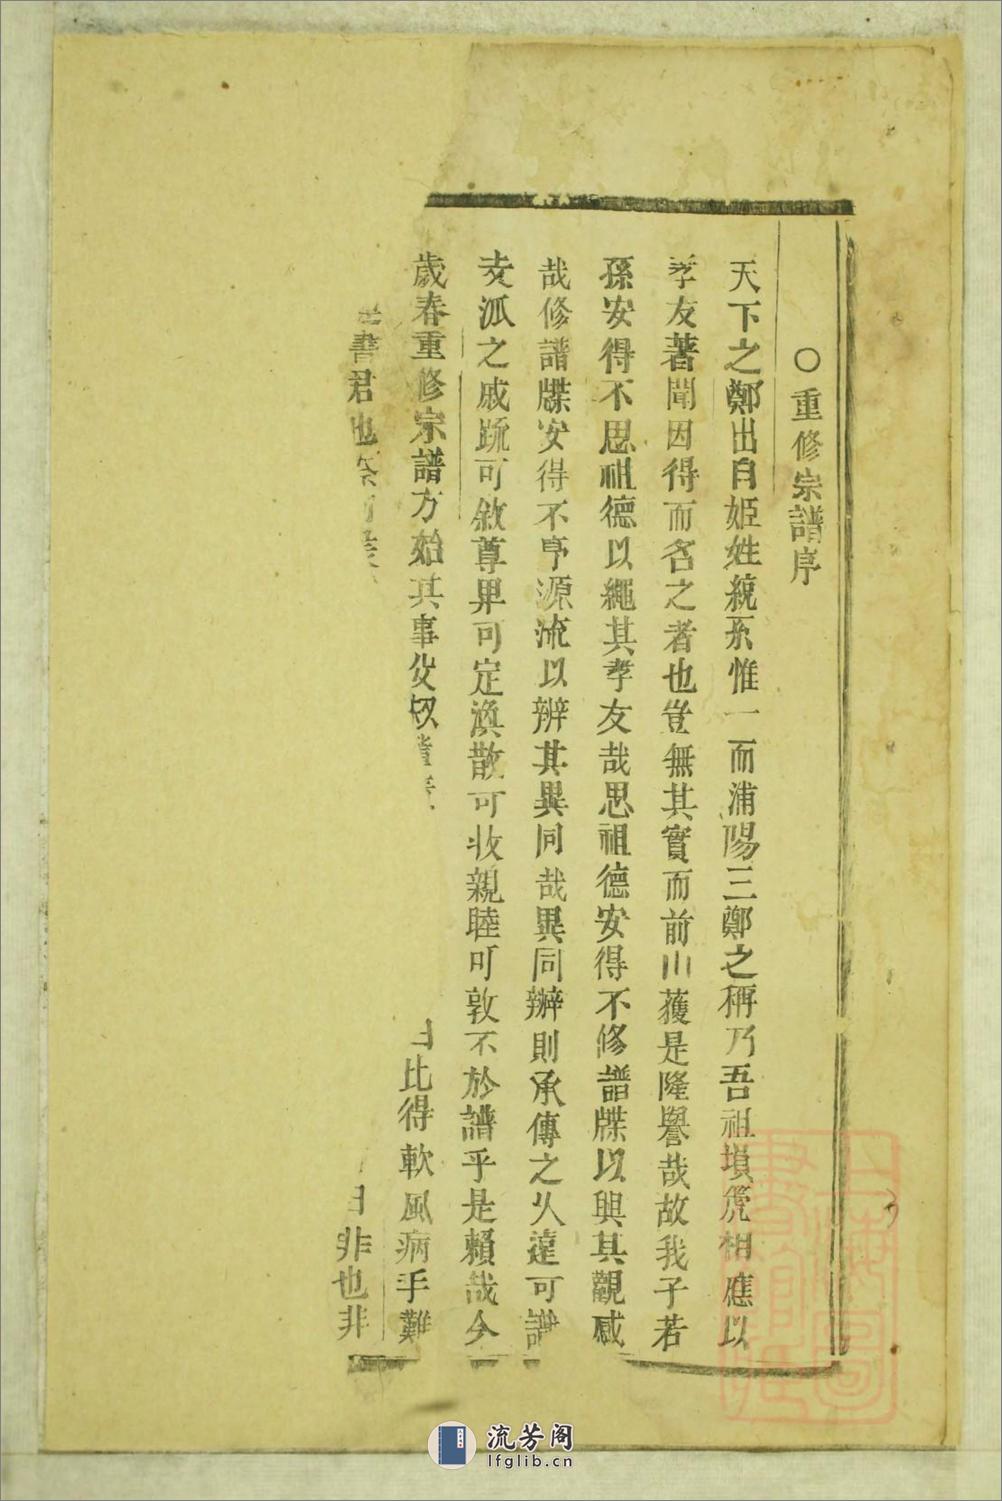 ○重修宗譜序
天下之鄭出自姬姓統系惟一而浦陽三鄭之稱乃吾祖塤箎相應以
孝友著聞因得而名之者也豈無其實而前山獲是隆譽哉故我子若
孫安得不思祖德以繩其孝友哉思祖德安得不修譜牒以興其觀感
哉修譜牒安得不序源流以辨其異同哉異同辦則承傳之久遠可譜
支派之戚疏可敘尊卑可定渙散可收親睦可敦不於譜乎是賴哉今
歲春重修宗譜方始其事父叔
日比得軟風病手難
書君也
日非也非
流芳阁
lfglib.cn